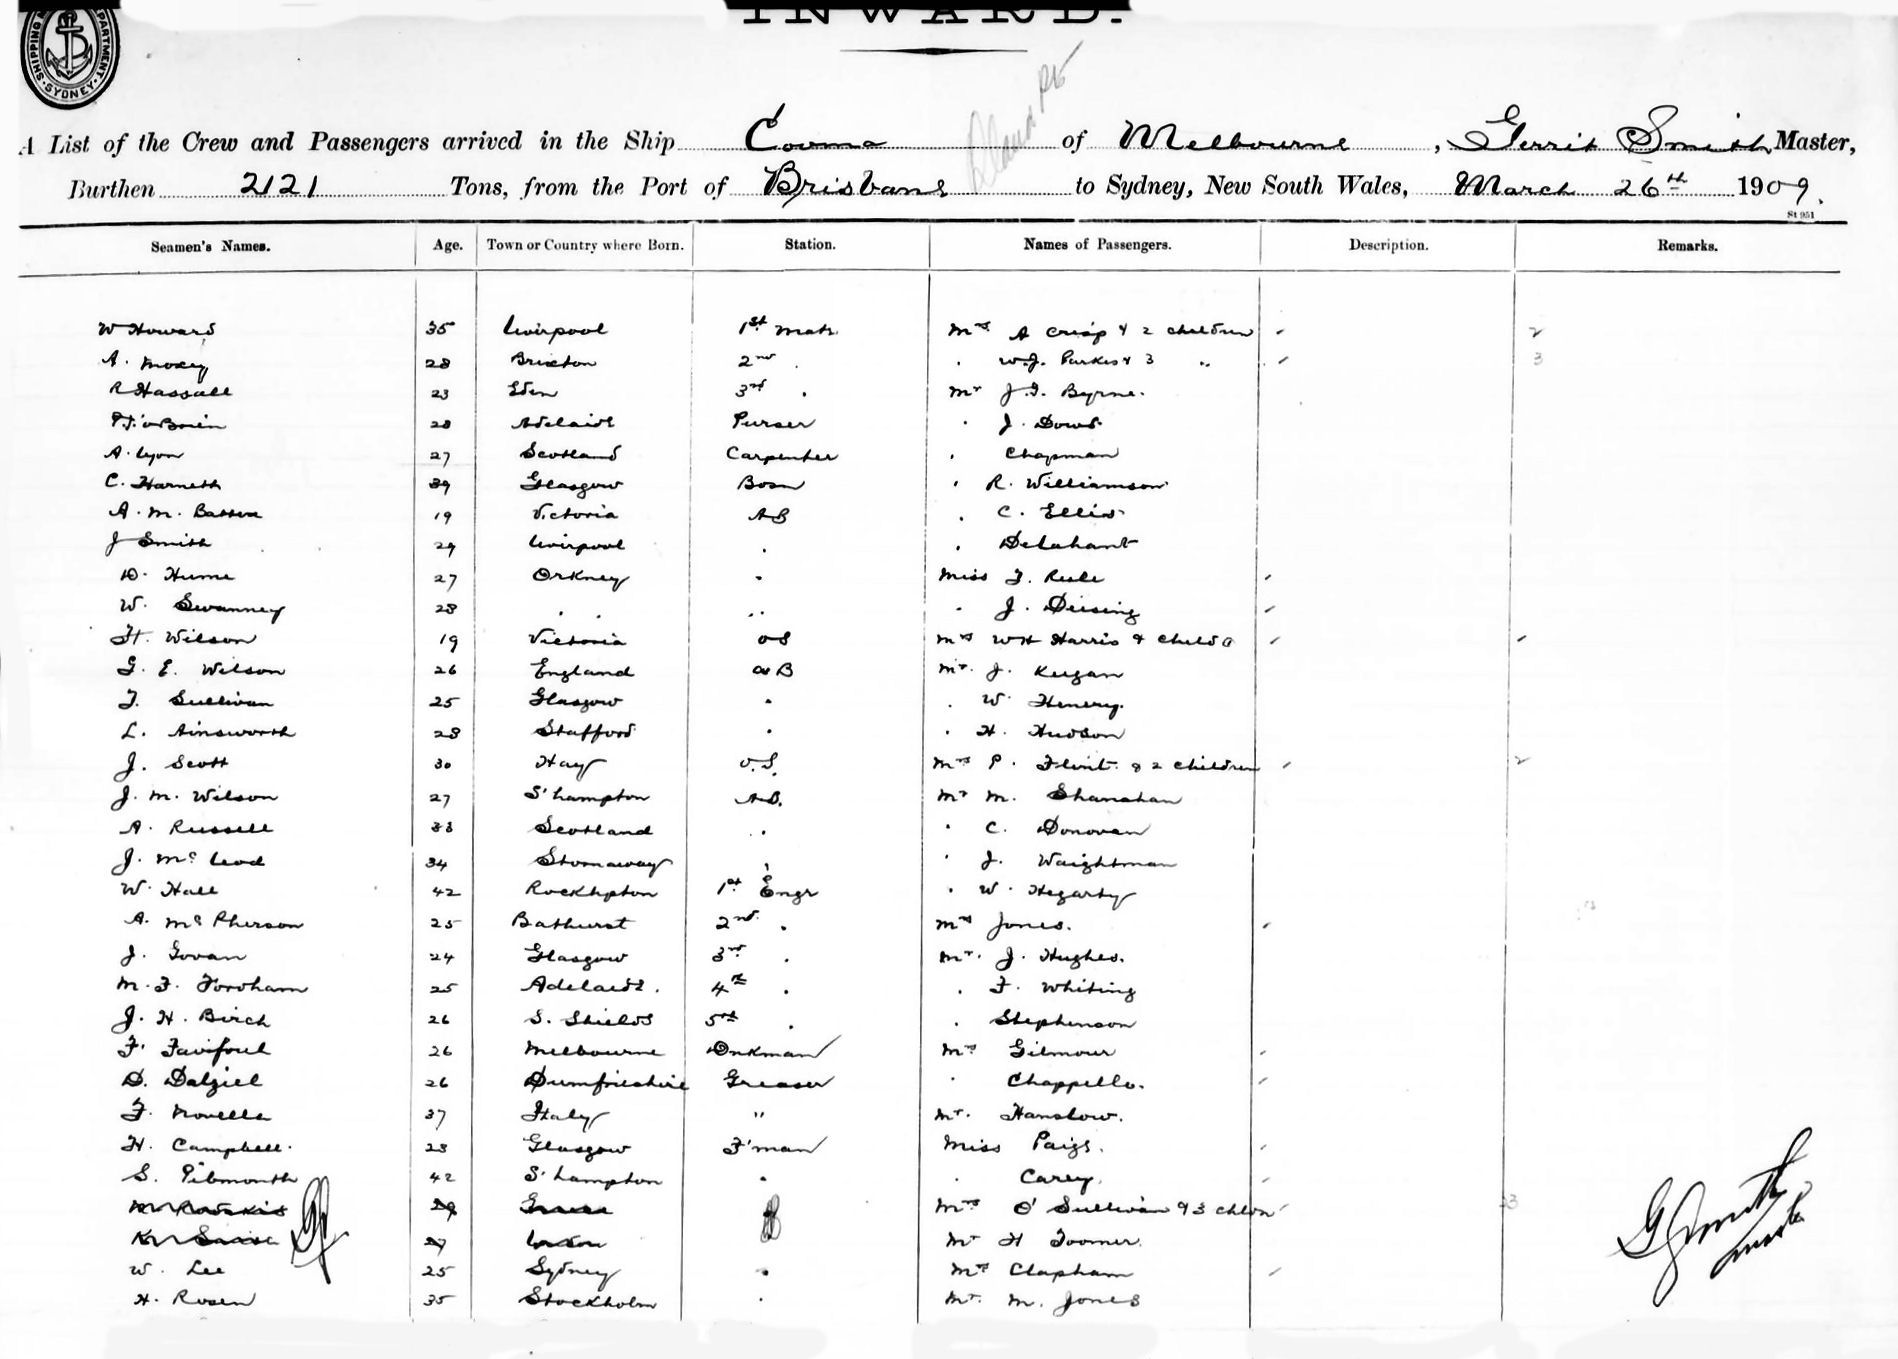 INWARD.
SHIPPING DEPARTMENT, SYDNEY.
A List of the Crew and Passengers arrived in the Ship Cooma of Melbourne, Gerrit Smith Master,
Burthen 2121 Tons, from the Port of Brisbane to Sydney, New South Wales, March 26th 1909.
St 951
Seamen's Names. Age. Town or Country where Born. Station. Names of Passengers. Description. Remarks.
W Howard 35 Liverpool 1st Mate Mrs A Crisp & 2 children 2
A. Moxey 28 Brixton 2nd . . W.J. Parkes & 3 " 3
R Hassall 23 Eden 3rd . Mr J.J. Byrne.
O'Brien 28 Adelaide Purser . J. Dowd
A. Lyon 27 Scotland Carpenter . Chapman
C. Harneth 39 Glasgow Bosn . R. Williamson
A. M. 19 Victoria AB . C. Ellis
J Smith 29 Liverpool . . Delahant
D. Hume 27 Orkney . Miss F. Rule
W. Swanney 28 . . .. . J. Deising
H. Wilson 19 Victoria OS Mrs WH Harris & child
G. E. Wilson 26 England AB Mr. J. Keegan
T. Sullivan 25 Glasgow . . W. Henery.
L. Ainsworth 28 Stafford . . H. Hudson
J. Scott 30 Hay O.S. Mrs P. Flint & 2 children 2
J. M. Wilson 27 S'hampton A.B. Mr M. Shanahan
A. Russell 33 Scotland . . . C. Donovan
J. McLeod 34 Stornaway . J. Waightman
W. Hall 42 Rockhpton 1st Engr . W. Hegarty
A. McPherson 25 Bathurst 2nd . Mrs Jones.
J. Govan 24 Glasgow 3rd . Mr. J. Hughes.
M. F. Fordham 25 Adelaide. 4th . . F. Whiting
J. H. Birch 26 S. Shields 5th . . Stephenson
F. Fairfoul 26 Melbourne Dnkman Mrs Gilmour
D. Dalziel 26 Dumfrieshire Greaser . Chappello.
F. Novella 37 Italy " Mr. Hanslow.
H. Campbell. 23 Glasgow F'man Miss Paige.
S. Pibmouth 42 S'hampton . . Carey.
29 Greece Mrs O'Sullivan & 3 chldn 3
27 Mr H Toomer.
W. Lee 25 Sydney . Mrs Clapham
H. Rosen 35 Stockholm . Mr. M. Jones
G Smith
Master